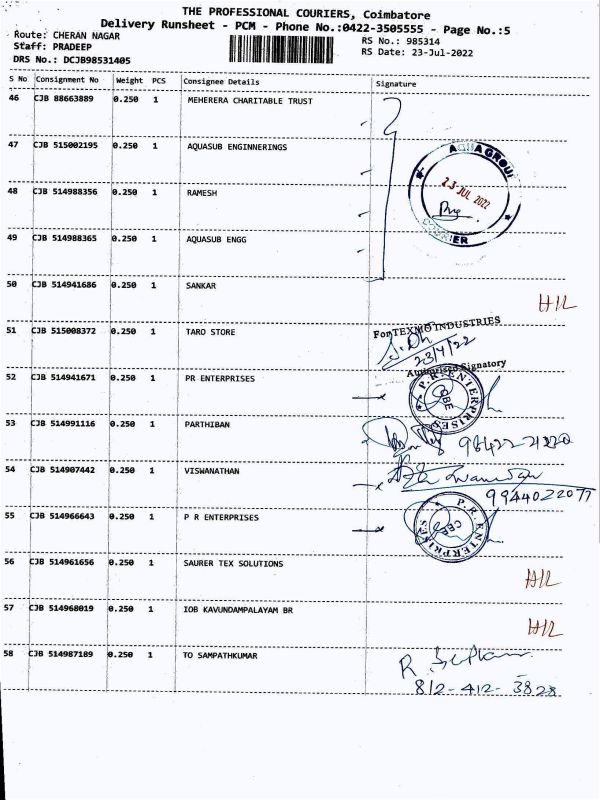 THE PROFESSIONAL COURIERS, Coimbatore
Delivery Runsheet - PCM - Phone No.:0422-3505555 - Page No.:5
Route: CHERAN NAGAR
Staff: PRADEEP
DRS No.: DCJB98531405
RS No.: 985314
RS Date: 23-Jul-2022
S No Consignment No Weight PCS Consignee Details Signature
46 CJB 88663889 0.250 1 MEHERERA CHARITABLE TRUST
47 CJB 515002195 0.250 1 AQUASUB ENGINNERINGS
AQUA GROUP
23 JUL 2022
48 CJB 514988356 0.250 1 RAMESH
49 CJB 514988365 0.250 1 AQUASUB ENGG
50 CJB 514941686 0.250 1 SANKAR
51 CJB 515008372 0.250 1 TARO STORE
For TEXMO INDUSTRIES
23/7/22
Authorised Signatory
52 CJB 514941671 0.250 1 PR ENTERPRISES
P.R. ENTERPRISES
CBE
53 CJB 514991116 0.250 1 PARTHIBAN
54 CJB 514907442 0.250 1 VISWANATHAN
9944022077
55 CJB 514966643 0.250 1 P R ENTERPRISES
P.R. ENTERPRISES
CBE
56 CJB 514961656 0.250 1 SAURER TEX SOLUTIONS
57 CJB 514968019 0.250 1 IOB KAVUNDAMPALAYAM BR
58 CJB 514987189 0.250 1 TO SAMPATHKUMAR
812-412-3828